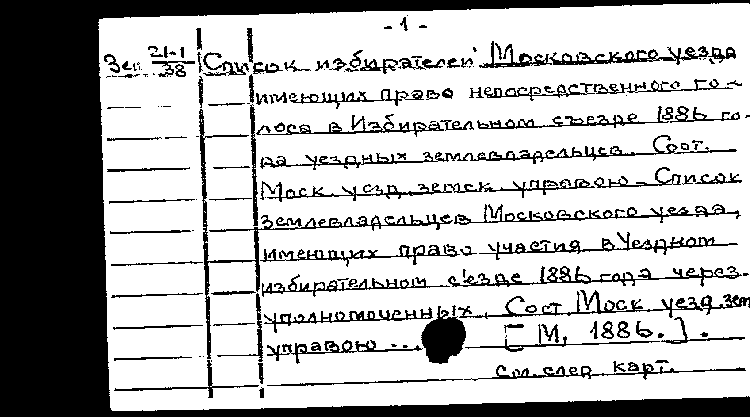 - 1 -
Зем 21-1/38 Список избирателей Московского уезда
имеющих право непосредственного го-
лоса в Избирательном съезде 1886 го-
да уездных землевладельцев. Сост.
Моск. уезд. земск. управою - Список
землевладельцев Московского уезда,
имеющих право участия в Уездном
избирательном съезде 1886 года через
уполномоченных. Сост. Моск. уезд. зем
управою ... [М, 1886.].
см. след. карт.